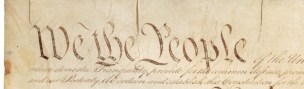 We the People of the Uni
insure domestic Tranquility, provide for the common defence, promo
and our Posterity, do ordain and establish this Constitution for the